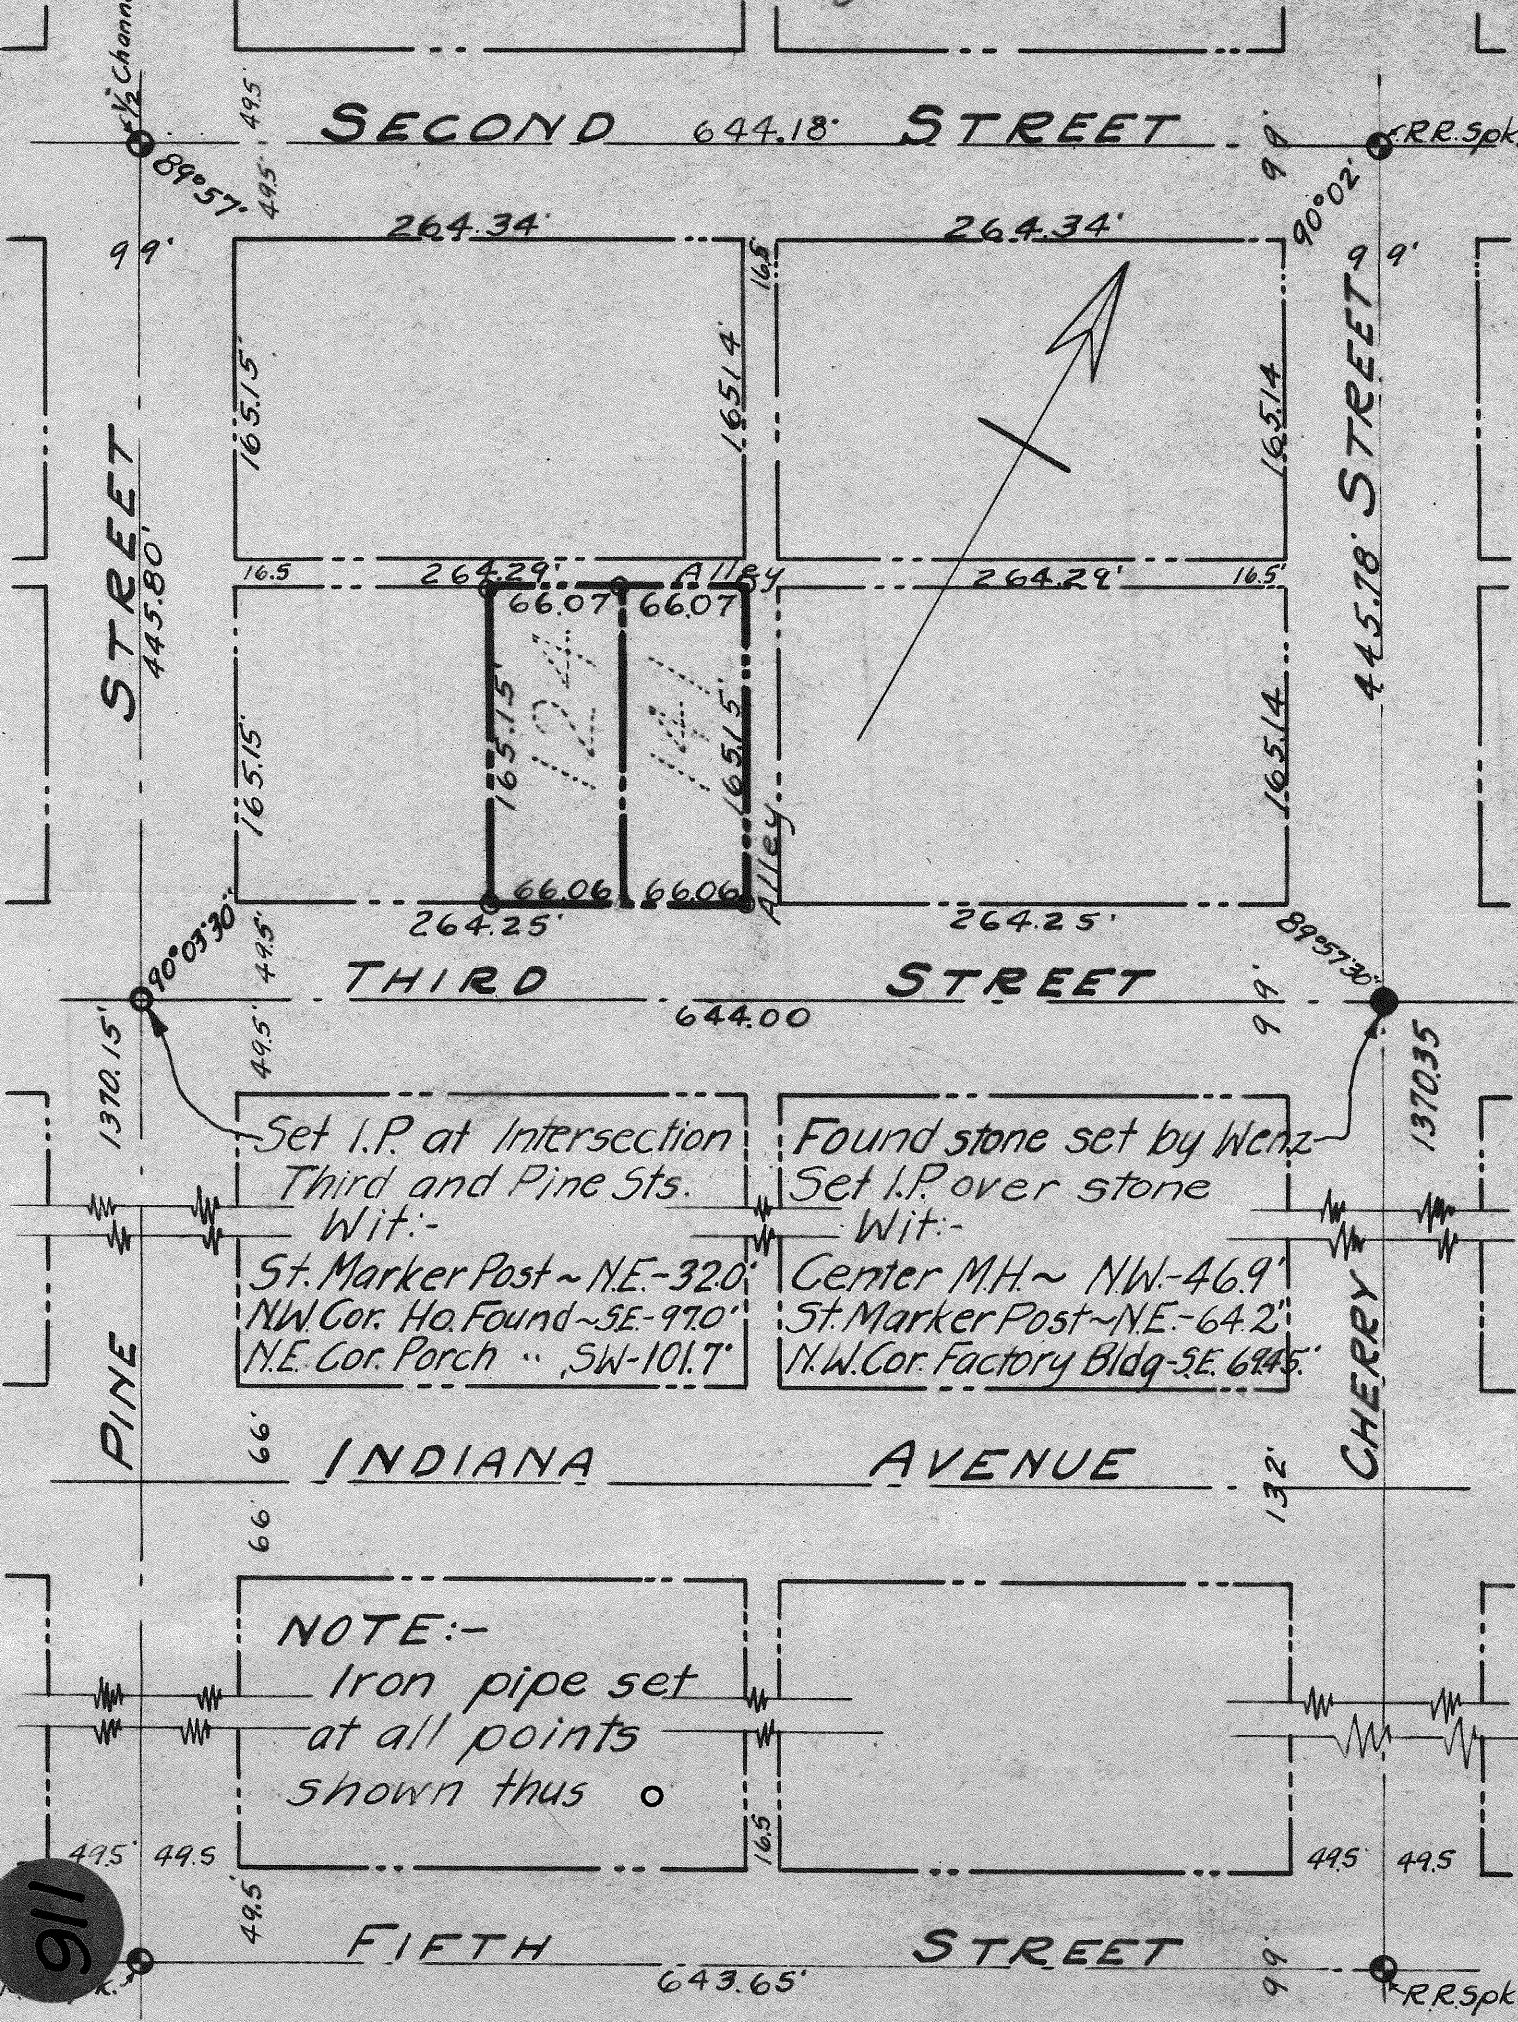 ½" Chann
49.5'
SECOND 644.18' STREET
99'
R.R.Spk.
89°57'
49.5'
90°02'
264.34'
264.34'
99'
16.5'
99'
165.15'
165.14'
165.14
STREET
445.80'
STREET
445.78'
16.5
264.29'
Alley
264.29'
16.5'
66.07
66.07
124
165.15'
165.15'
165.15'
165.14
Alley
66.06
66.06
264.25'
264.25'
90°03'30"
49.5'
89°57'30"
THIRD STREET
644.00
99'
49.5'
1370.15'
1370.35
Set I.P. at Intersection
Third and Pine Sts.
Wit:-
St. Marker Post~N.E.-32.0'
N.W. Cor. Ho. Found~S.E.-97.0'
N.E. Cor. Porch " , SW-101.7'
Found stone set by Wenz
Set I.P. over stone
Wit:-
Center M.H.~ N.W.-46.9'
St. Marker Post~N.E.-64.2'
N.W. Cor. Factory Bldg-S.E. 69.45'
PINE
CHERRY
66'
INDIANA AVENUE
132'
66'
NOTE:-
Iron pipe set
at all points
shown thus
16.5'
49.5' 49.5
49.5 49.5
49.5'
FIFTH STREET
643.65'
99'
R.R.Spk
911